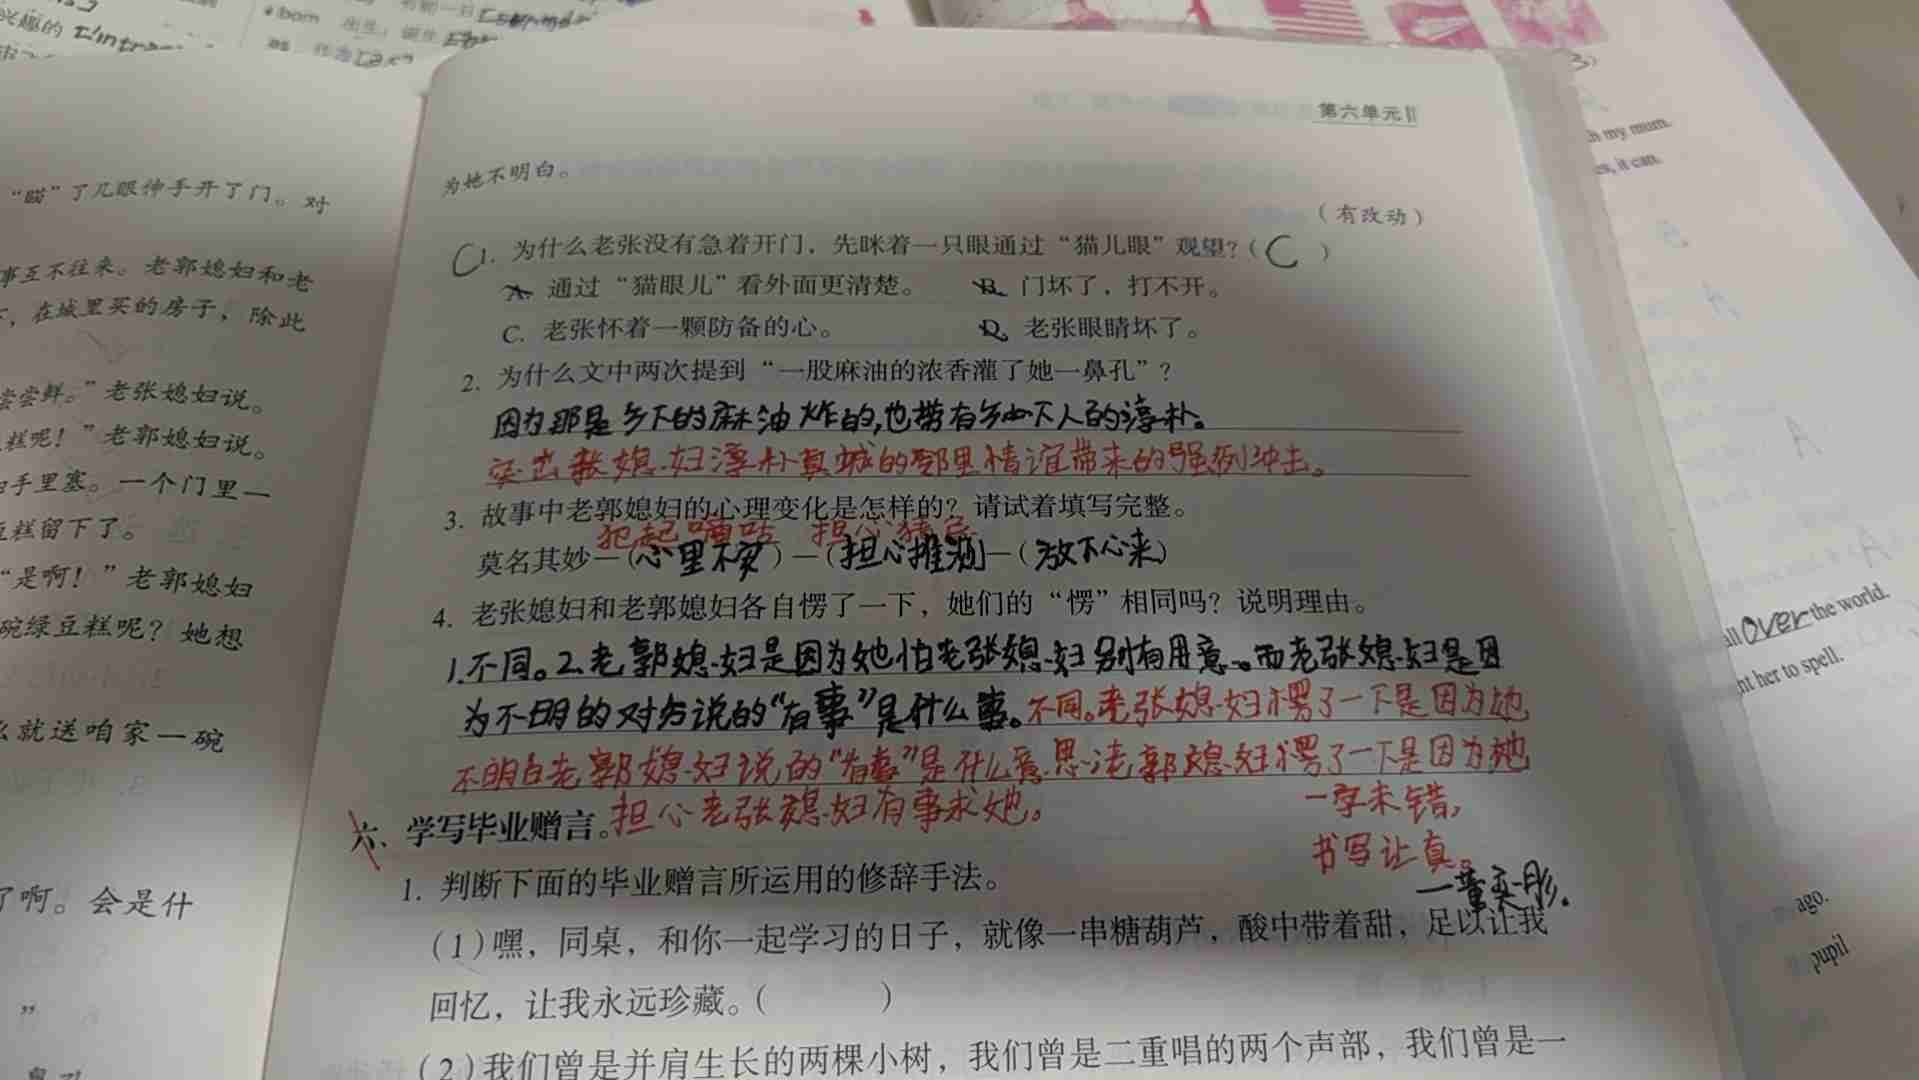 兴趣的
born 出生；诞生
第六单元
为她不明白。
（有改动）
C 1. 为什么老张没有急着开门，先眯着一只眼通过“猫儿眼”观望？（ C ）
A. 通过“猫眼儿”看外面更清楚。 B. 门坏了，打不开。
C. 老张怀着一颗防备的心。 D. 老张眼睛坏了。
2. 为什么文中两次提到“一股麻油的浓香灌了她一鼻孔”？
因为那是乡下的麻油炸的,也带有乡下人的淳朴。
突出张媳妇淳朴真诚的邻里情谊带来的强烈冲击。
3. 故事中老郭媳妇的心理变化是怎样的？请试着填写完整。
犯起嘀咕 担心猜忌
莫名其妙—(心里不安)—(担心推测)—(放下心来)
4. 老张媳妇和老郭媳妇各自愣了一下，她们的“愣”相同吗？说明理由。
1.不同。2.老郭媳妇是因为她怕老张媳妇别有用意。而老张媳妇是因
为不明的对方说的“有事”是什么事。不同。老张媳妇愣了一下是因为她
不明白老郭媳妇说的“有事”是什么意思；老郭媳妇愣了一下是因为她
担心老张媳妇有事求她。
一字未错，
书写认真。
六、学写毕业赠言。
1. 判断下面的毕业赠言所运用的修辞手法。
(1)嘿，同桌，和你一起学习的日子，就像一串糖葫芦，酸中带着甜，足以让我
回忆，让我永远珍藏。（ ）
(2)我们曾是并肩生长的两棵小树，我们曾是二重唱的两个声部，我们曾是一
“瞄”了几眼伸手开了门。对
事互不往来。老郭媳妇和老
，在城里买的房子，除此
尝尝鲜。”老张媳妇说。
糕呢！”老郭媳妇说。
手里塞。一个门里一
豆糕留下了。
“是啊！”老郭媳妇
碗绿豆糕呢？她想
么就送咱家一碗
了啊。会是什
”
h my mum.
es, it can.
all over the world.
ht her to spell.
ago.
pupil